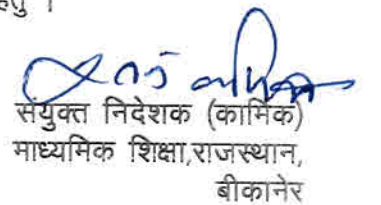 हेतु ।
संयुक्त निदेशक (कार्मिक)
माध्यमिक शिक्षा,राजस्थान,
बीकानेर